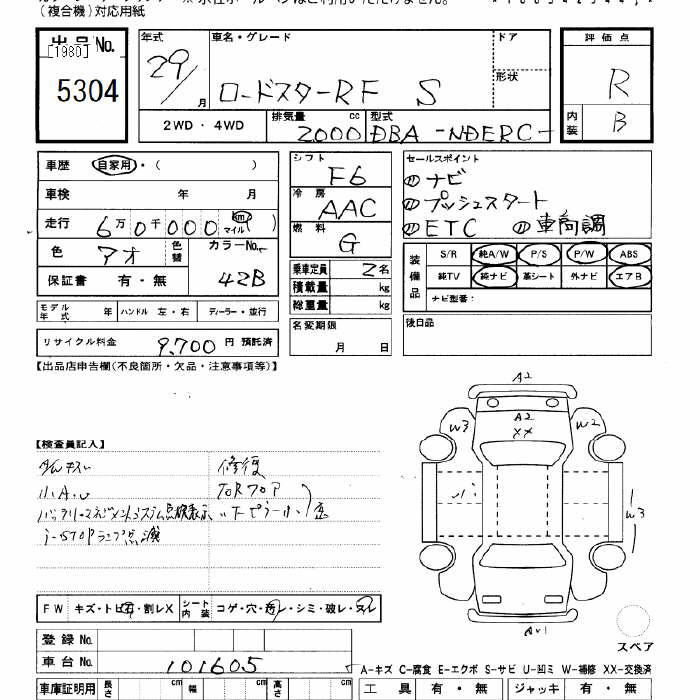 (複合機)対応用紙
出品No.
[1980]
5304
年式
29
月
車名・グレード
ロードスターRF S
ドア
形状
2WD ・ 4WD
排気量
cc
2000
型式
DBA-NDERC-
評価点
R
内装
B
車歴
自家用・( )
車検 年 月
走行 6万0千000 km マイル( )
色 アオ
色替
カラーNo.
42B
保証書 有・無
シフト
F6
冷房
AAC
燃料
G
乗車定員 2名
積載量 kg
総重量 kg
名変期限
月 日
セールスポイント
ナビ
プッシュスタート
ETC
装備品
S/R 純A/W P/S P/W ABS
純TV 純ナビ 革シート 外ナビ エアB
ナビ型番:
後日品
モデル年式 年 ハンドル 左・右 ディーラー・並行
リサイクル料金 9,700 円 預託済
【出品店申告欄(不良箇所・欠品・注意事項等)】
【検査員記入】
小A.U
修復
バッテリーマネジメントシステム点検表示
i-STOPランプ点滅
A2
W3
A2
XX
W2
W3
FW キズ・トビ石・割レX シート内装 コゲ・穴・汚レ・シミ・破レ・スレ
登録No.
車台No. 101605
スペア
A-キズ C-腐食 E-エクボ S-サビ U-凹ミ W-補修 XX-交換済
車庫証明用 長さ cm 幅 cm 高さ cm
工具 有・無 ジャッキ 有・無